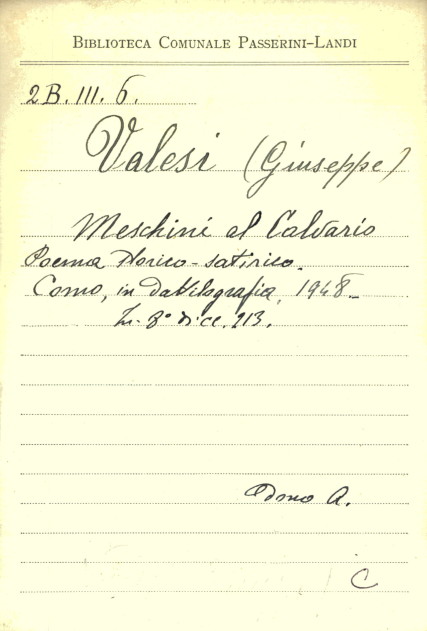 BIBLIOTECA COMUNALE PASSERINI-LANDI
2B. III. 6.
Valesi (Giuseppe)
Meschini al Calvario
Poema storico-satirico.
Como, in dattilografia, 1948.
In-8° di cc. 213.
Dono A.
C